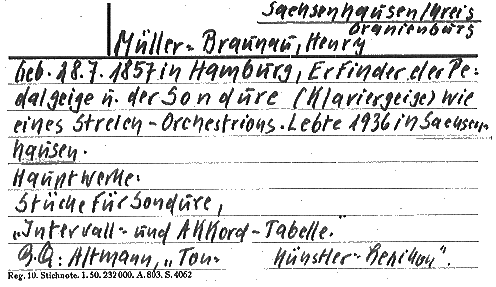 Sachsenhausen/Kreis
Oranienburg
Müller-Braunau, Henry
Geb. 28.7.1857 in Hamburg, Erfinder der Pe-
dalgeige u. der Sondure (Klaviergeige) wie
eines Streich-Orchestrions. Lebte 1936 in Sachsen-
hausen.
Hauptwerke:
Stücke für Sondure,
„Intervall- und Akkord-Tabelle."
B.Q: Altmann, „Ton- Künstler-Lexikon".
Reg. 10. Stichnote. 1. 50. 232000. A. 803. S. 4062